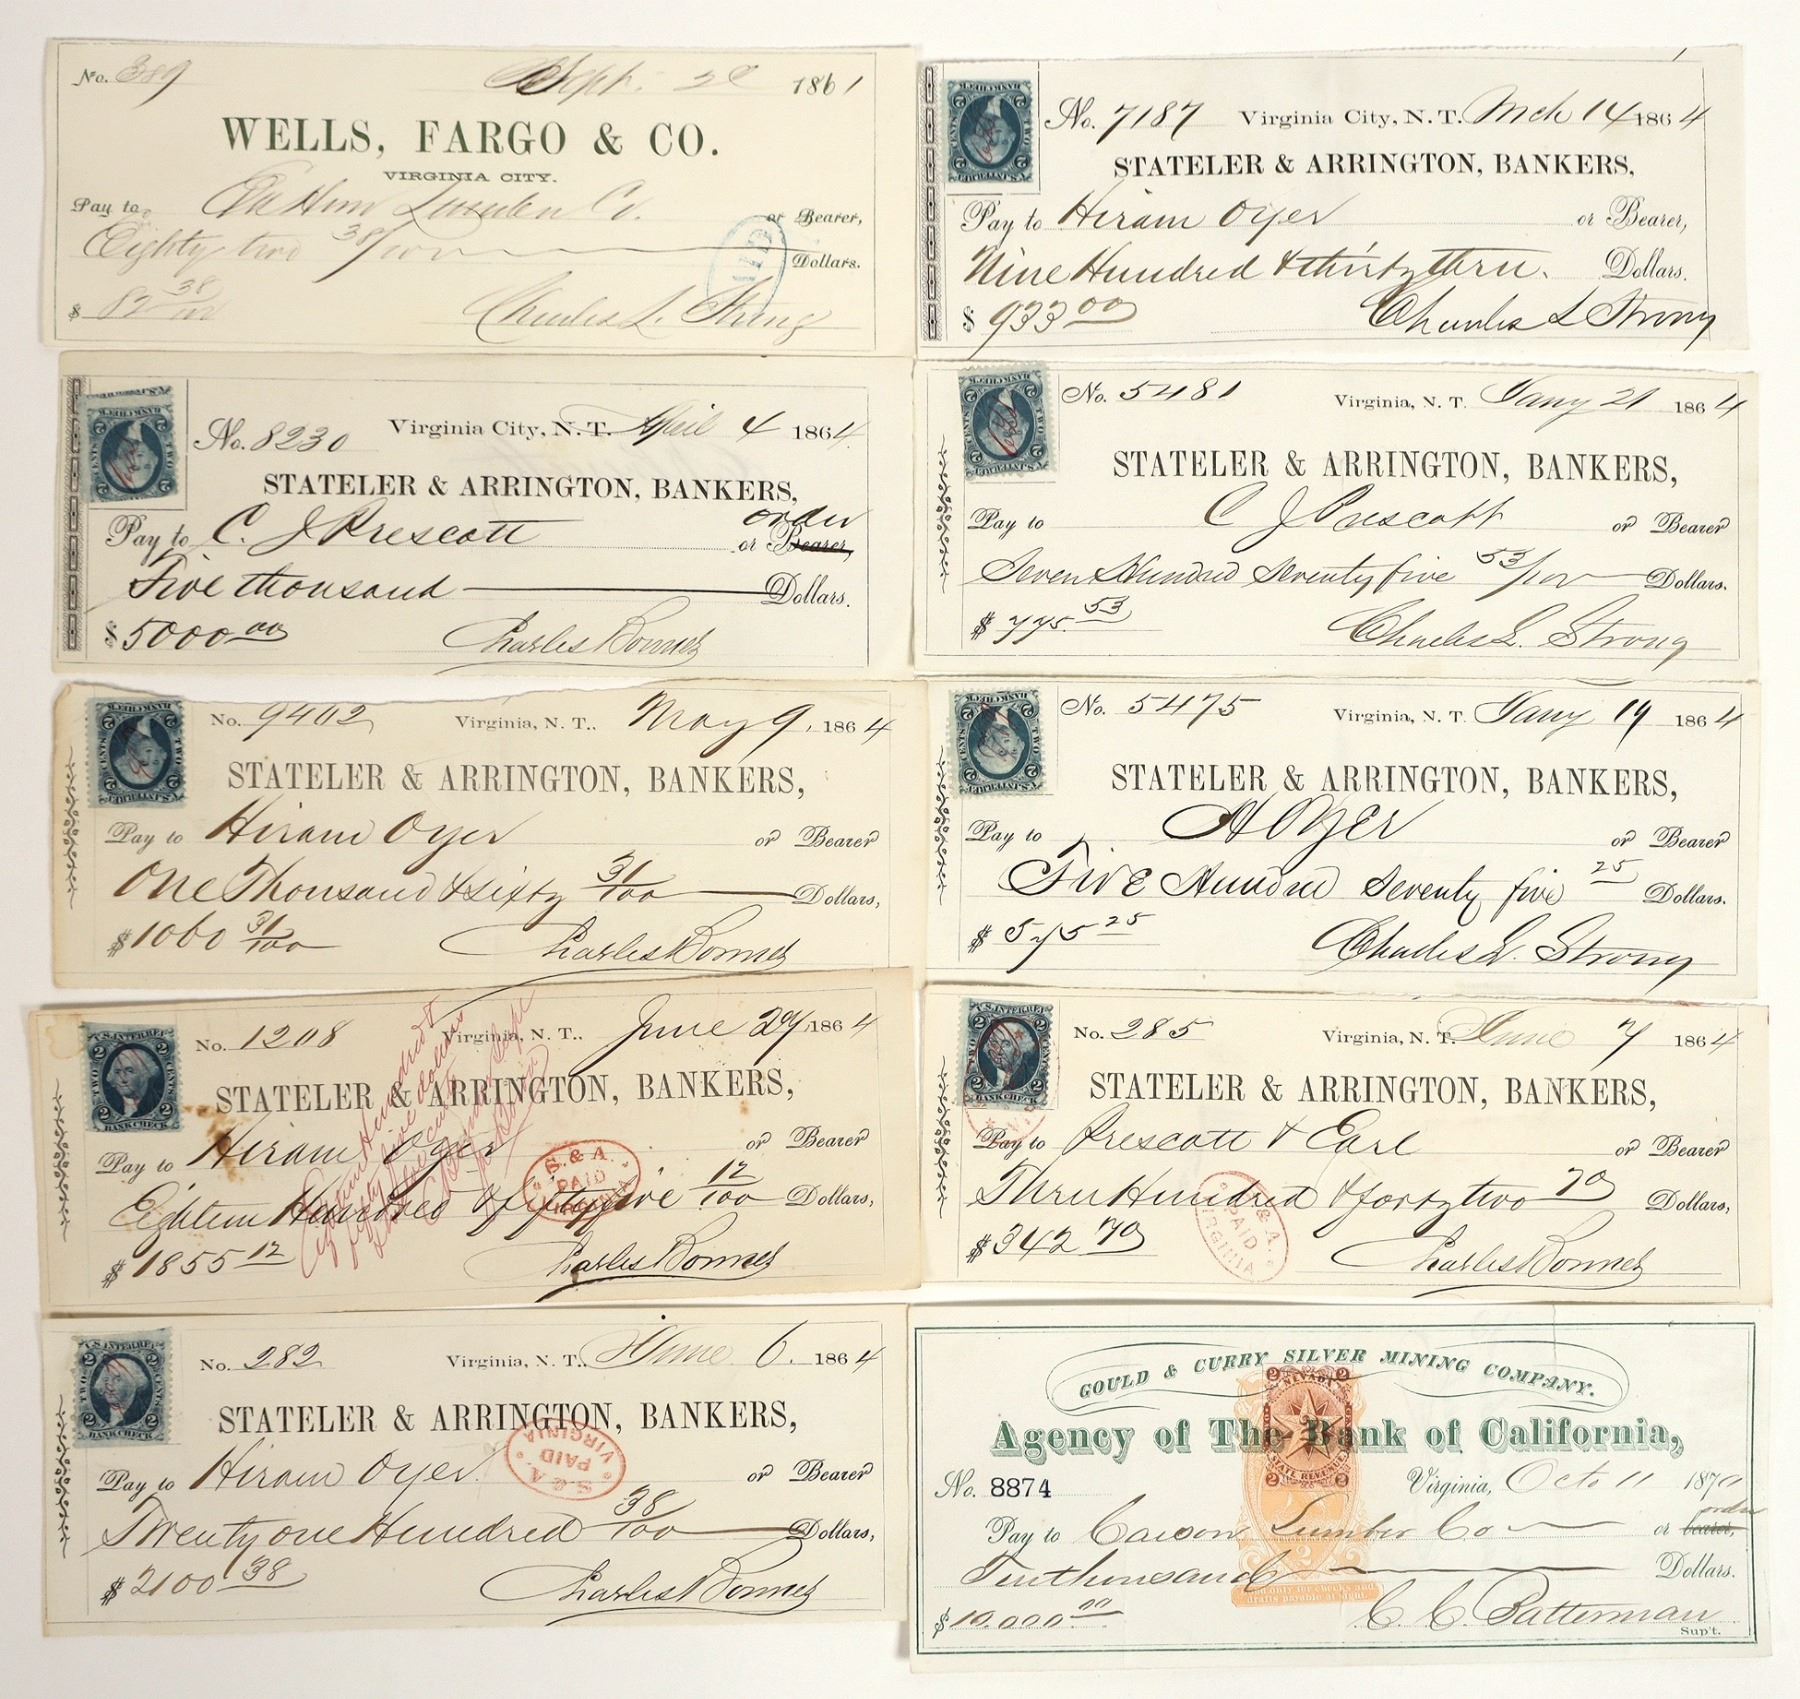 No. 389 Sept. 20 1861
WELLS, FARGO & CO.
VIRGINIA CITY.
Pay to Co. or Bearer,
Eighty two 38/100 Dollars.
$ 82 38/100 Charles L. Strong
No. 7187 Virginia City, N. T. Mch 14 1864
STATELER & ARRINGTON, BANKERS,
Pay to Hiram Oyer or Bearer,
Nine Hundred & thirty three. Dollars.
$ 933 00 Charles L Strong
No. 8230 Virginia City, N. T. April 4 1864
STATELER & ARRINGTON, BANKERS,
order
Pay to C. J Prescott or Bearer,
Five thousand Dollars.
$ 5000.00 Charles Bonner
No. 5481 Virginia, N. T. Jany 21 1864
STATELER & ARRINGTON, BANKERS,
Pay to C J Prescott or Bearer
Seven Hundred Seventy five 53/100 Dollars.
$ 775.53 Charles L. Strong
No. 9402 Virginia, N. T.. May 9, 1864
STATELER & ARRINGTON, BANKERS,
Pay to Hiram Oyer or Bearer
One Thousand & sixty 31/100 Dollars,
$ 1060 31/100 Charles Bonner
No. 5475 Virginia, N. T. Jany 19 1864
STATELER & ARRINGTON, BANKERS,
Pay to H Oyer or Bearer
Five Hundred Seventy five 25 Dollars.
$ 575 25 Charles L. Strong
U.S. INTER.REV.
TWO CENTS
BANK CHECK
No. 1208 Virginia, N. T.. June 29, 1864
STATELER & ARRINGTON, BANKERS,
Pay to Hiram Oyer or Bearer
Eighteen Hundred & fifty five 12/100 Dollars,
$ 1855 12 Charles Bonner
S. & A.
PAID
VIRGINIA
No. 285 Virginia, N. T. June 7 1864
STATELER & ARRINGTON, BANKERS,
Pay to Prescott & Earl or Bearer
Three Hundred & forty two 70 Dollars,
$ 342 70 Charles Bonner
S. & A.
PAID
VIRGINIA
U.S. INTER.REV.
TWO CENTS
BANK CHECK
No. 282 Virginia, N. T.. June 6. 1864
STATELER & ARRINGTON, BANKERS,
Pay to Hiram Oyer or Bearer
Twenty one Hundred 38/100 Dollars,
$ 2100 38 Charles Bonner
S & A.
PAID
VIRGINIA
GOULD & CURRY SILVER MINING COMPANY.
NEVADA
Agency of The Bank of California,
STATE REVENUE
No. 8874 Virginia, Octo 11 1870
order
Pay to Carson Lumber Co or bearer,
Ten thousand Dollars.
Good only for checks and
drafts payable at sight.
$ 10,000.00 C. C. Batterman
Sup't.